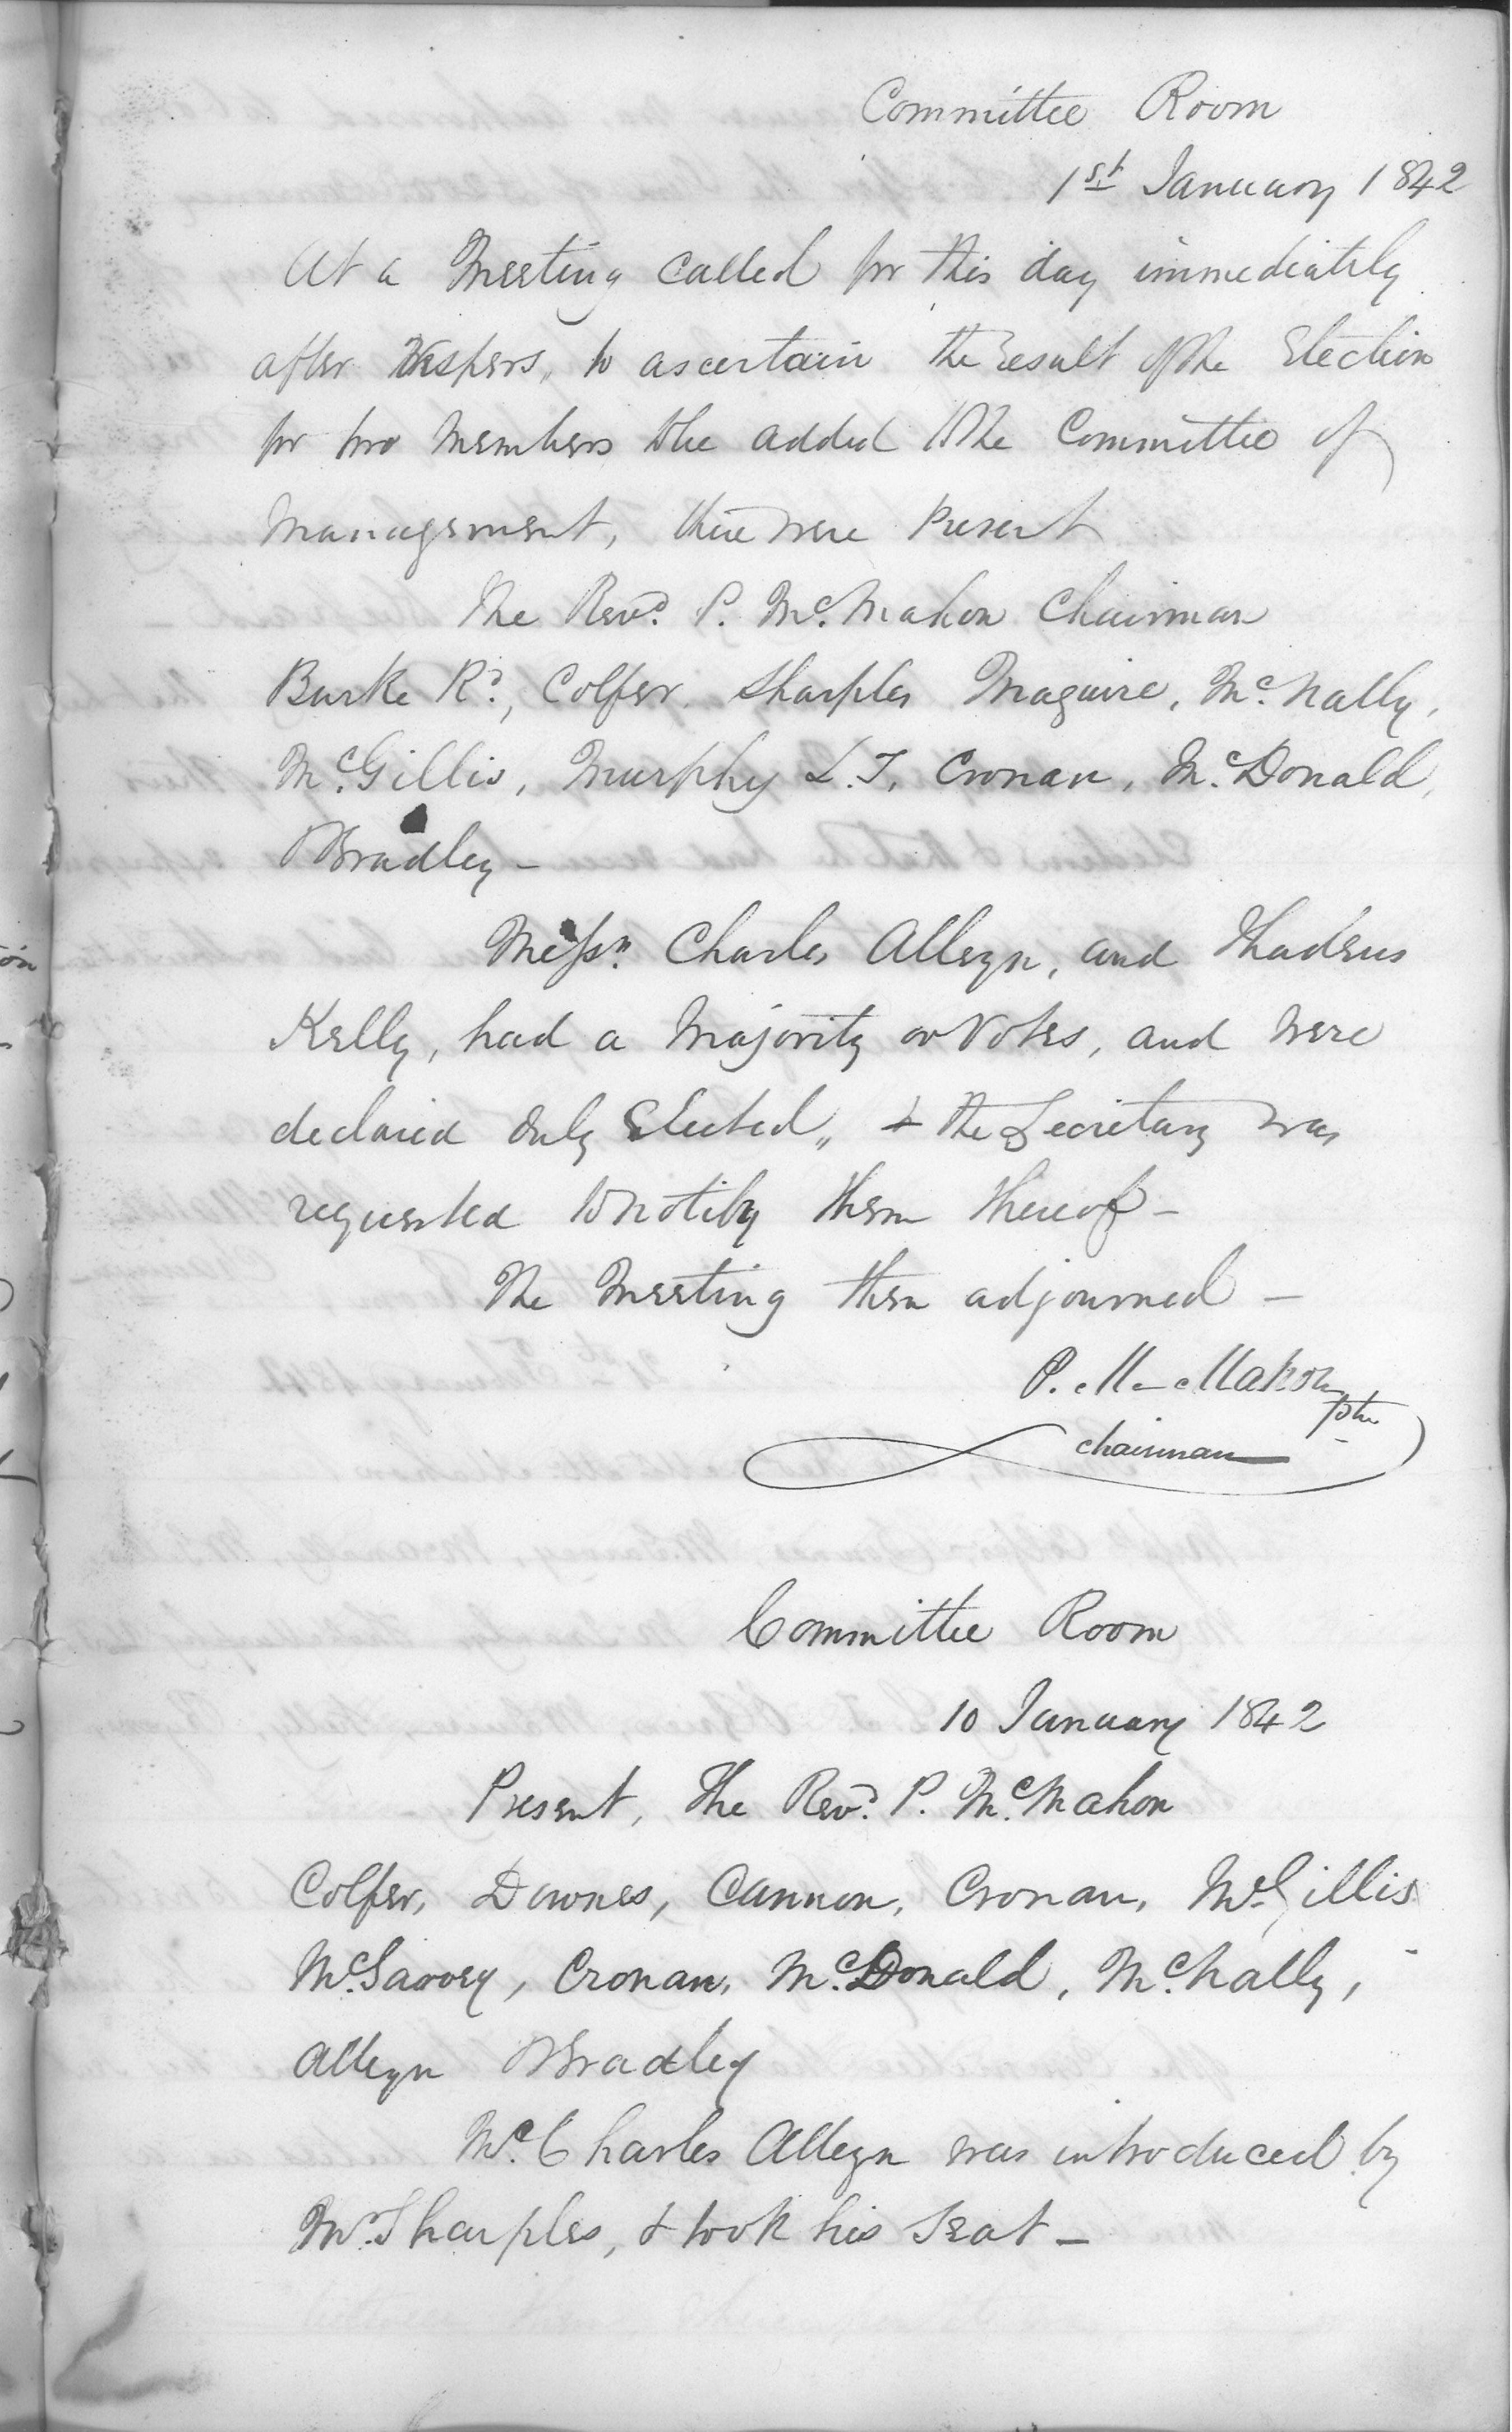 Committee Room
1st January 1842
At a Meeting called for this day immediately
after Vespers, to ascertain the result of the Election
for two Members to be added to the Committee of
Management, there were Present
The Revd. P. McMahon Chairman
Burke Rd., Colfer, Sharples Maguire, McNally,
McGillis, Murphy L.T, Cronan, McDonald,
OBradley –
Messrs. Charles Alleyn, and Thadeus
Kelly, had a Majority or Votes, and were
declared duly Elected,, & the Secretary was
requested to notify them thereof –
The Meeting then adjourned –
P. McMahon
ptre
chairman
Committee Room
10 January 1842
Present, The Revd. P. McMahon
Colfer, Downes, Cannon, Cronan, McGillis
McGarvey, Cronan, McDonald, McNally,
Alleyn OBradley
Mr. Charles Alleyn was introduced by
Mr. Sharples, & took his Seat –